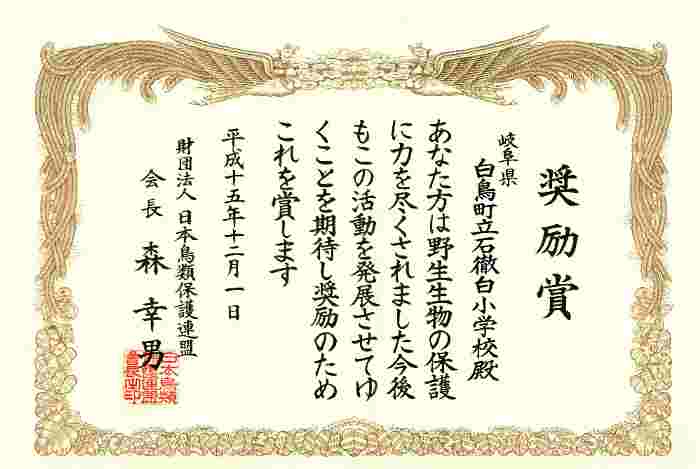 奨励賞
岐阜県
白鳥町立石徹白小学校殿
あなた方は野生生物の保護
に力を尽くされました今後
もこの活動を発展させてゆ
くことを期待し奨励のため
これを賞します
平成十五年十二月一日
財団法人日本鳥類保護連盟
会長 森幸男
日本鳥類
保護連盟
会長之印